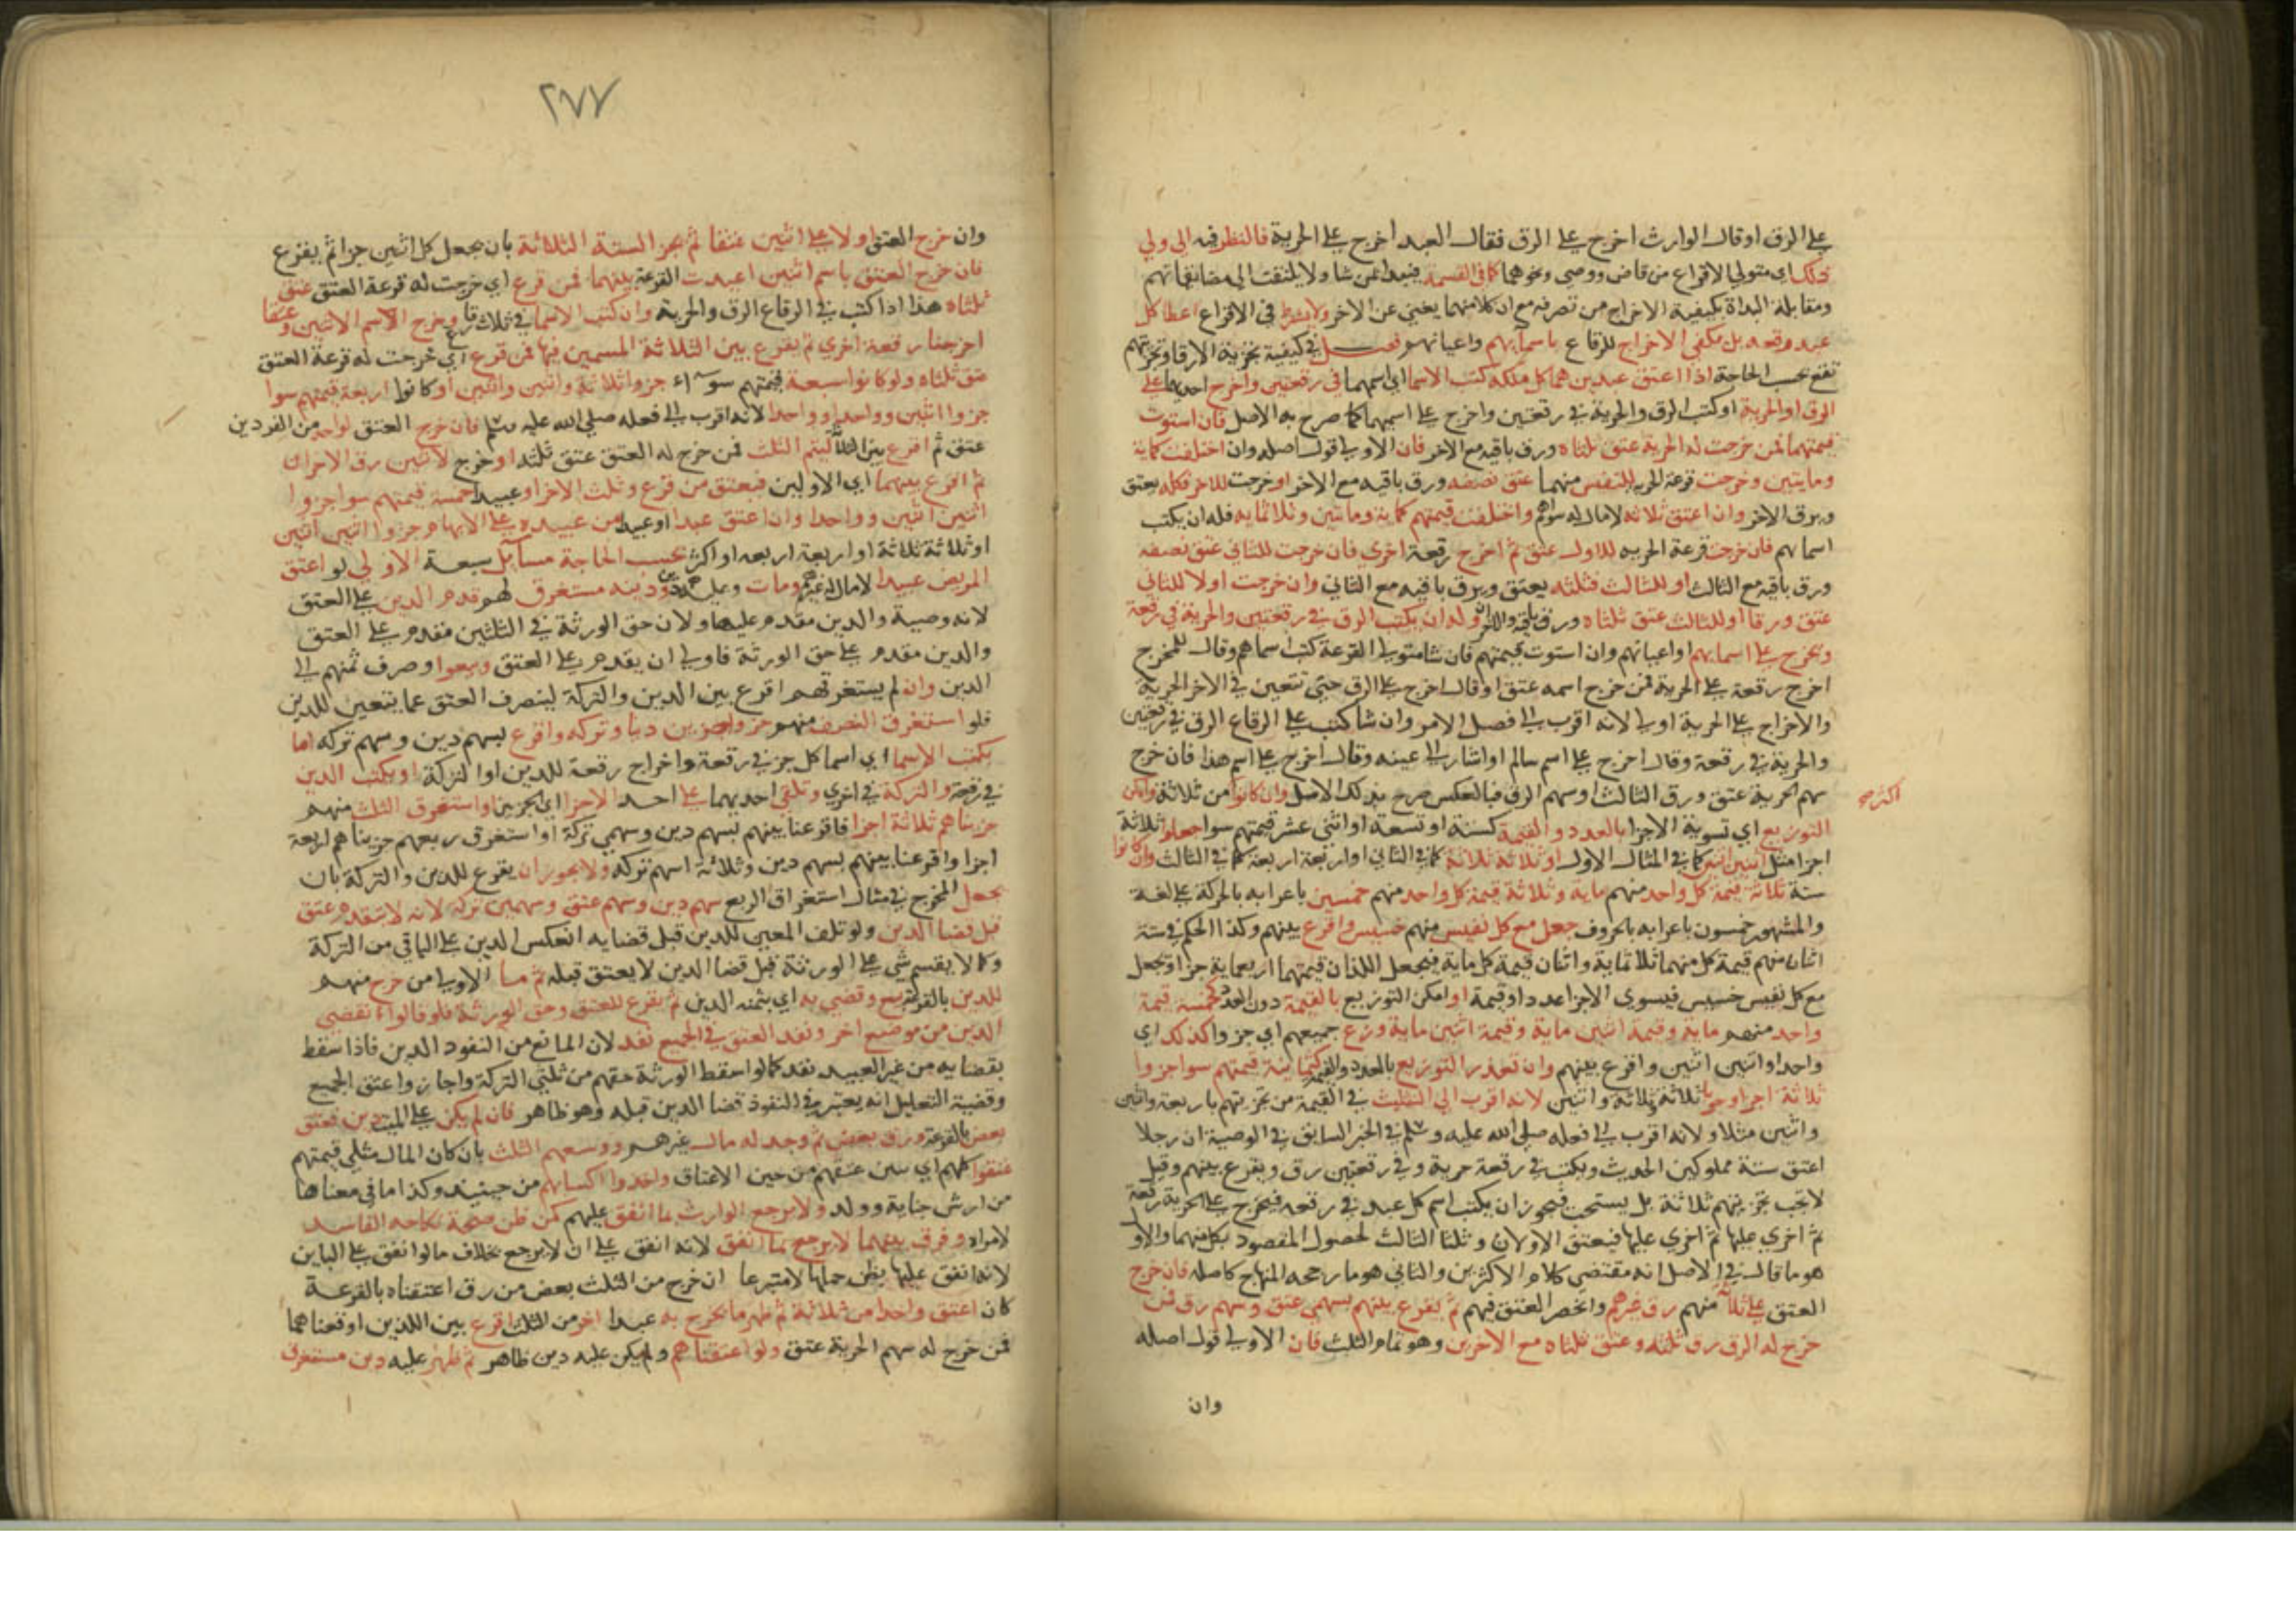 على الرق او قال الوارث اخرج على الرق فقال العبد اخرج على الحرية فالنظر فيه الى ولي
ذلك اي متولي الاقراع من قاض ووصي ونحوهما كما في القسمة فيبدا بمن شا ولا يلتفت الى مضايقاتهم
ومقابلة البداة بكيفية الاخراج من تصرفه مع ان كلا منهما يغني عن الاخر ولا يشترط في الاقراع اعطا كل
عبد رقعه بل يكفي الاخراج للرقاع باسمايهم واعيانهم فصل في كيفية تجزية الارقا وتجزيتهم
تقع بحسب الحاجة اذا اعتق عبدين هما كل ملكه كتب الاسما اي اسمهما في رقعتين واخرج احديهما على
الرق او الحرية او كتب الرق والحرية في رقعتين واخرج على اسمهما كما صرح به الاصل فان استوت
قيمتهما فمن خرجت له الحرية عتق ثلثاه ورق باقيه مع الاخر فان الاولى قول اصله وان اختلفت كماية
ومايتين وخرجت قرعة الحرية للنفيس منهما عتق نصفه ورق باقيه مع الاخر او خرجت للاخر فكله يعتق
ويرق الاخر وان اعتق ثلاثه لا مال له سواهم واختلفت قيمتهم كماية ومايتين وثلاثمايه فله ان يكتب
اسماهم فان خرجت قرعة الحريه للاول عتق ثم اخرج رقعة اخرى فان خرجت للثاني عتق نصفه
ورق باقيه مع الثالث او للثالث فثلثه يعتق ويرق باقيه مع الثاني وان خرجت اولا للثاني
عتق ورقا او للثالث عتق ثلثاه ورق باقيه والاخران وله ان يكتب الرق في رقعتين والحرية في رقعة
ويخرج على اسمايهم او اعيانهم وان استوت قيمتهم فان شا متولي القرعة كتب اسماهم وقال للمخرج
اخرج رقعة على الحرية فمن خرج اسمه عتق او قال اخرج على الرق حتى تتعين في الاخر الحرية
والاخراج على الحرية اولى لانه اقرب الى فصل الامر وان شا كتب على الرقاع الرق في رقعتين
والحرية في رقعة وقال اخرج على اسم سالم او اشار الى عينه وقال اخرج على اسم هذا فان خرج
سهم الحرية عتق ورق الثالث او سهم الرق فبالعكس صرح بذلك الاصل وان كانوا من ثلاثة وامكن
اكثر صح
التوزيع اي تسوية الاجزا بالعدد والقيمة كستة او تسعة او اثنى عشر قيمتهم سوا جعلوا ثلاثة
اجزا مثل اثنين اثنين كما في المثال الاول او ثلاثة ثلاثة كما في الثاني او اربعة اربعة كما في الثالث وان كانوا
ستة ثلاثة قيمة كل واحد منهم ماية وثلاثة قيمة كل واحد منهم خمسين باعرابه بالحركة على لغة
والمشهور خمسون باعرابه بالحروف جعل مع كل نفيس منهم خسيس واقرع بينهم وكذا الحكم في ستة
اثنان منهم قيمة كل منهما ثلاثماية واثنان قيمة كل ماية فيجعل اللذان قيمتهما اربعماية جزا وتجعل
مع كل نفيس خسيس فيسوى الاجزا عددا وقيمة او امكن التوزيع بالقيمة دون العدد كخمسة قيمة
واحد منهم ماية وقيمة اثنين ماية وقيمة اثنين ماية وزع جميعهم اي جزوا كذلك اي
واحدا واثنين اثنين واقرع بينهم وان تعذر التوزيع بالعدد والقيمة كثمانية قيمتهم سوا جزوا
ثلاثة اجزا وجوبا ثلاثة وثلاثة واثنين لانه اقرب الى التثليث في القيمة من تجزيتهم باربعة واثنين
واثنين مثلا ولانه اقرب الى فعله صلى الله عليه وسلم في الخبر السابق في الوصية ان رجلا
اعتق ستة مملوكين الحديث ويكتب في رقعة حرية وفي رقعتين رق ويقرع بينهم وقيل
لا تجب تجزيتهم ثلاثة بل يستحب فيجوز ان يكتب اسم كل عبد في رقعه فيخرج على الحرية رقعة
ثم اخرى عليها ثم اخرى عليها فيعتق الاولان وثلثا الثالث لحصول المقصود بكل منهما والاول
هو ما قال في الاصل انه مقتضى كلام الاكثرين والثاني هو ما رجحه المنهاج كاصله فان خرج
العتق على ثلاثة منهم رق غيرهم وانحصر العتق فيهم ثم يقرع بينهم بسهمي عتق وسهم رق فمن
خرج له الرق رق ثلثه وعتق ثلثاه مع الاخرين وهو تمام الثلث فان الاولى قول اصله
وان
٢٧٧
وان خرج العتق اولا على اثنين عتقا ثم تجزا الستة الثلاثة بان يجعل كل اثنين جزا ثم يقرع
فان خرج العتق باسم اثنين اعيدت القرعة بينهما فمن قرع اي خرجت له قرعة العتق عتق
ثلثاه هذا اذا كتب في الرقاع الرق والحرية وان كتب الاسما في ثلاث رقاع وخرج الاسم الاثنين وعتقا
اخرجنا رقعة اخرى ثم يقرع بين الثلاثة المسمين فيها فمن قرع اي خرجت له قرعة العتق
عتق ثلثاه ولو كانوا سبعة قيمتهم سوآء جزوا ثلاثة واثنين واثنين او كانوا اربعة قيمتهم سوا
جزوا اثنين وواحدا وواحدا لانه اقرب الى فعله صلى الله عليه وسلم فان خرج العتق لواحد من الفردين
عتق ثم اقرع بين الثلاثة ليتم الثلث فمن خرج له العتق عتق ثلثه او خرج لاثنين رق الاخران
ثم اقرع بينهما اي الاولين فيعتق من قرع وثلث الاخر او عبيدا خمسة قيمتهم سوا جزوا
اثنين اثنين وواحدا وان اعتق عبدا او عبيدا من عبيده على الابهام جزوا اثنين اثنين
او ثلاثة ثلاثة او اربعة اربعه او اكثر بحسب الحاجة مسايل سبعة الاولى لو اعتق
المريض عبيدا لا مال له غيرهم ومات وعليه دين ودينه مستغرق لهم قدم الدين على العتق
لانه وصية والدين مقدم عليها ولان حق الورثة في الثلثين مقدم على العتق
والدين مقدم على حق الورثة فاولى ان يقدم على العتق وبيعوا وصرف ثمنهم الى
الدين وان لم يستغرقهم اقرع بين الدين والتركة لينصرف العتق عما يتعين للدين
فلو استغرق النصف منهم جزوا جزين دينا وتركه واقرع بسهم دين وسهم تركه اما
بكتب الاسما اي اسما كل جز في رقعة واخراج رقعة للدين او التركة او يكتب الدين
في رقعة والتركة في اخرى وتلقى احديهما على احد الاجزا اي الجزين او استغرق الثلث منهم
جزيناهم ثلاثة اجزا فاقرعنا بينهم بسهم دين وسهمي تركة او استغرق ربعهم جزيناهم اربعة
اجزا واقرعنا بينهم بسهم دين وثلاثة اسهم تركه ولا يجوز ان يقرع للدين والتركة بان
يجعل المخرج في مثال استغراق الربع سهم دين وسهم عتق وسهمين تركة لانه لا يتقدم عتق
قبل قضا الدين ولو تلف المعين للدين قبل قضايه انعكس الدين على الباقي من التركة
وكما لا يقسم شي على الورثة قبل قضا الدين لا يعتق قبله ثم الاولى من خرج منهم
للدين بالقرعة بيع وقضي به اي بثمنه الدين ثم يقرع للعتق وحق الورثة فلو قالوا نقضي
الدين من موضع اخر ونفذ العتق في الجميع نفذ لان المانع من النفوذ الدين فاذا سقط
بقضايه من غير العبيد نفذ كما لو اسقط الورثة حقهم من ثلثي التركة واجازوا عتق الجميع
وقضية التعليل انه يعتبر في النفوذ قضا الدين قبله وهو ظاهر فان لم يكن على الميت دين فعتق
بعض بالقرعة ورق بعض ثم وجد له مال غيرهم ووسعهم الثلث بان كان المال مثلي قيمتهم
عتقوا كلهم اي تبين عتقهم من حين الاعتاق واخذوا اكسابهم من حينيذ وكذا ما في معناها
من ارش جناية وولد ولا يرجع الوارث بما انفق عليهم كمن ظن صحة نكاحه الفاسد
لامراه وفرق بينهما لا يرجع بما انفق لانه انفق على ان لا يرجع بخلاف ما لو انفق على الباين
لانه انفق عليها بظن حملها لا متبرعا ان خرج من الثلث بعض من رق اعتقناه بالقرعة
كان اعتق واحدا من ثلاثة ثم ظهر ما يخرج به عبدا اخر من الثلث اقرع بين اللذين اوقفناهما
فمن خرج له سهم الحرية عتق ولو اعتقناهم ولم يكن عليه دين ظاهر ثم ظهر عليه دين مستغرق